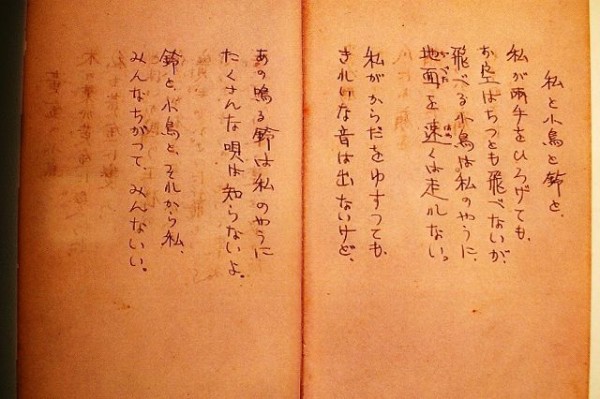 私と小鳥と鈴と、
私が両手をひろげても、
お空はちつとも飛べないが、
飛べる小鳥は私のやうに、
地面を速くは走れない。
私がからだをゆすつても、
きれいな音は出ないけど、
あの鳴る鈴は私のやうに
たくさんな唄は知らないよ。
鈴と小鳥と、それから私、
みんなちがつて、みんないい。